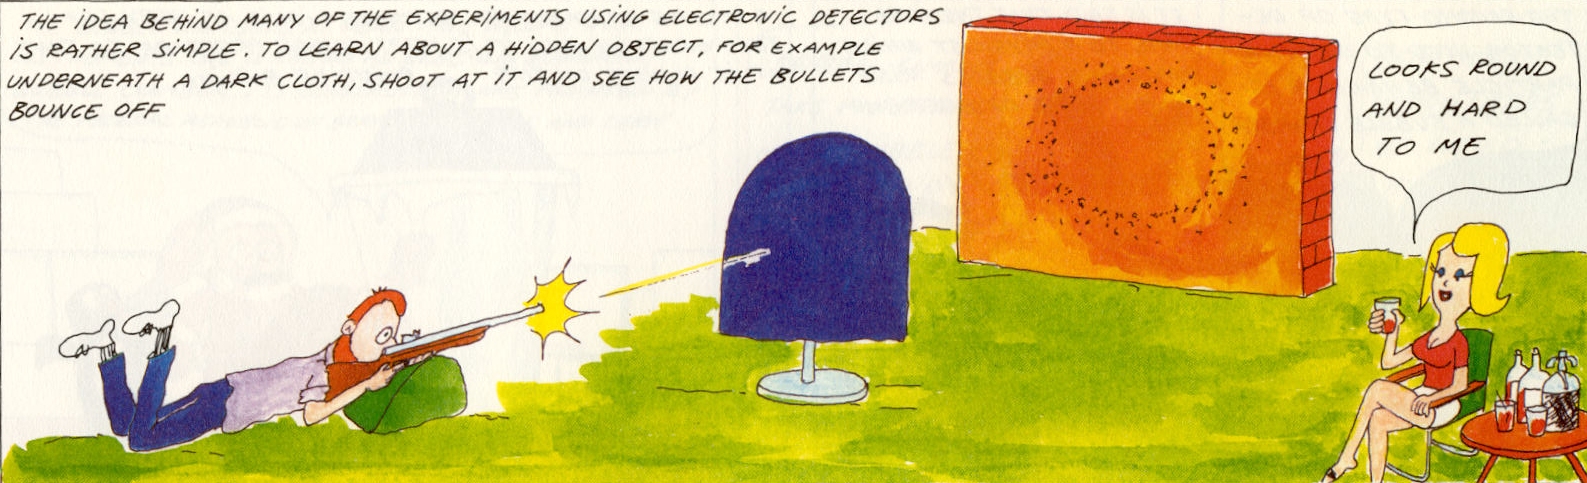 THE IDEA BEHIND MANY OF THE EXPERIMENTS USING ELECTRONIC DETECTORS
IS RATHER SIMPLE. TO LEARN ABOUT A HIDDEN OBJECT, FOR EXAMPLE
UNDERNEATH A DARK CLOTH, SHOOT AT IT AND SEE HOW THE BULLETS
BOUNCE OFF
LOOKS ROUND
AND HARD
TO ME